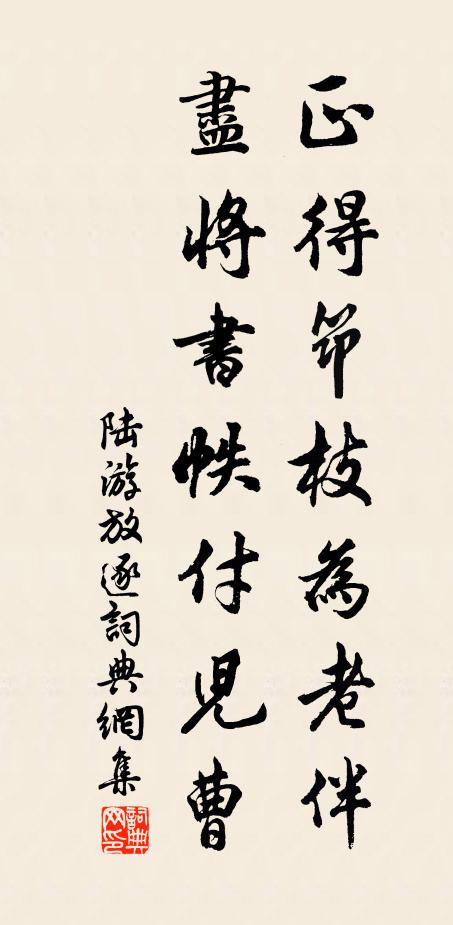 正得筇枝為老伴
盡將書帙付兒曹
陸游放逐詞典網集
詞典網印